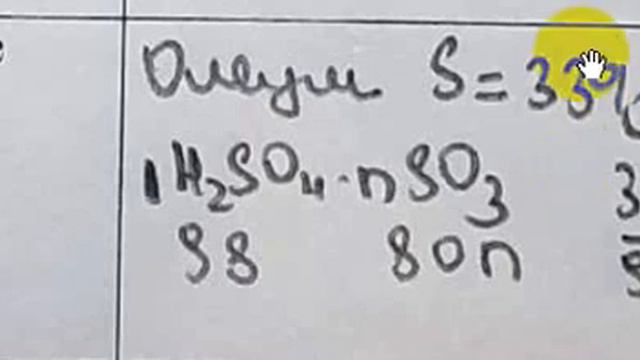 Олеум S = 33%
1H₂SO₄·nSO₃ 3
98 80n